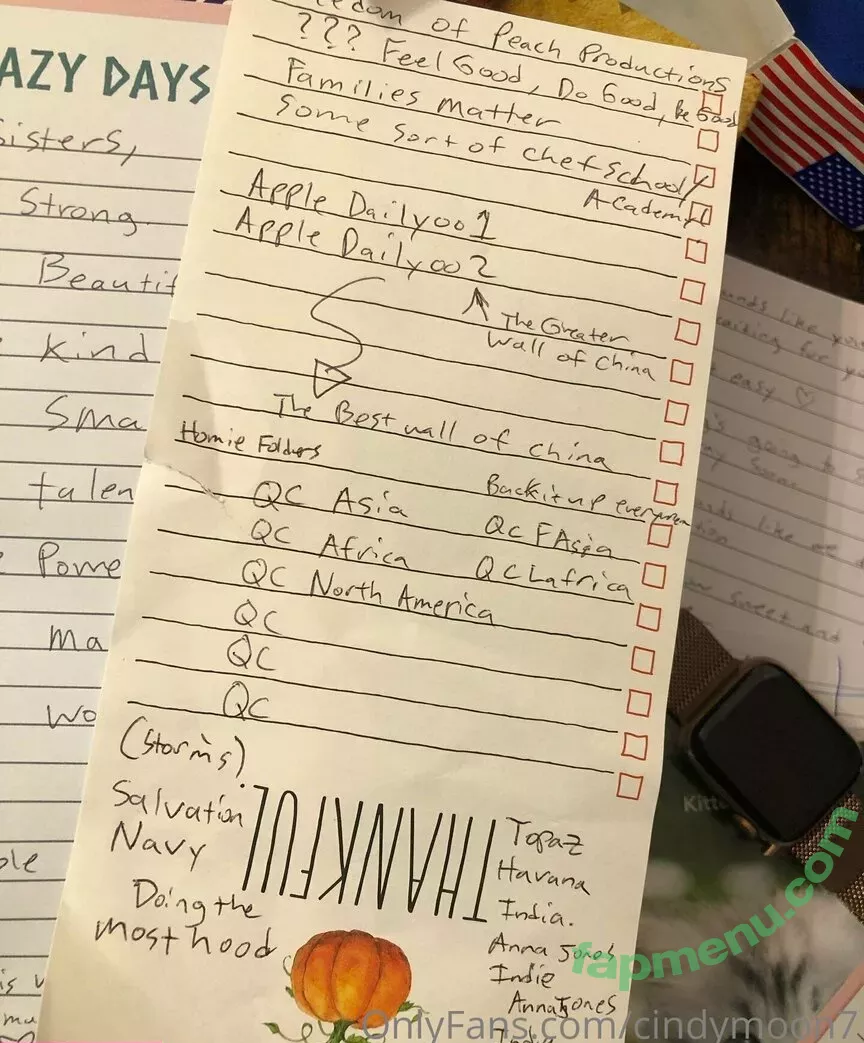 AZY DAYS
Sisters,
Strong
Beautif
Kind
Sma
talen
Powe
ma
wo
edom of Peach Productions
??? Feel Good, Do Good, be Good
Families matter
Some sort of chef school/
Academy
Apple Daily001
Apple Daily002
The Greater
Wall of China
The Best wall of China
Homie Folders
Back it up evergreen
QC Asia
QC FAsia
QC Africa
QC Lafrica
QC North America
QC
QC
QC
(Storms)
Salvation
Navy
Doing the
most hood
THANKFUL
Topaz
Havana
India.
Anna Jones
Indie
Anna Jones
India
easy ♡
sweet and
Kitt
fapmenu.com
OnlyFans.com/cindymoon7